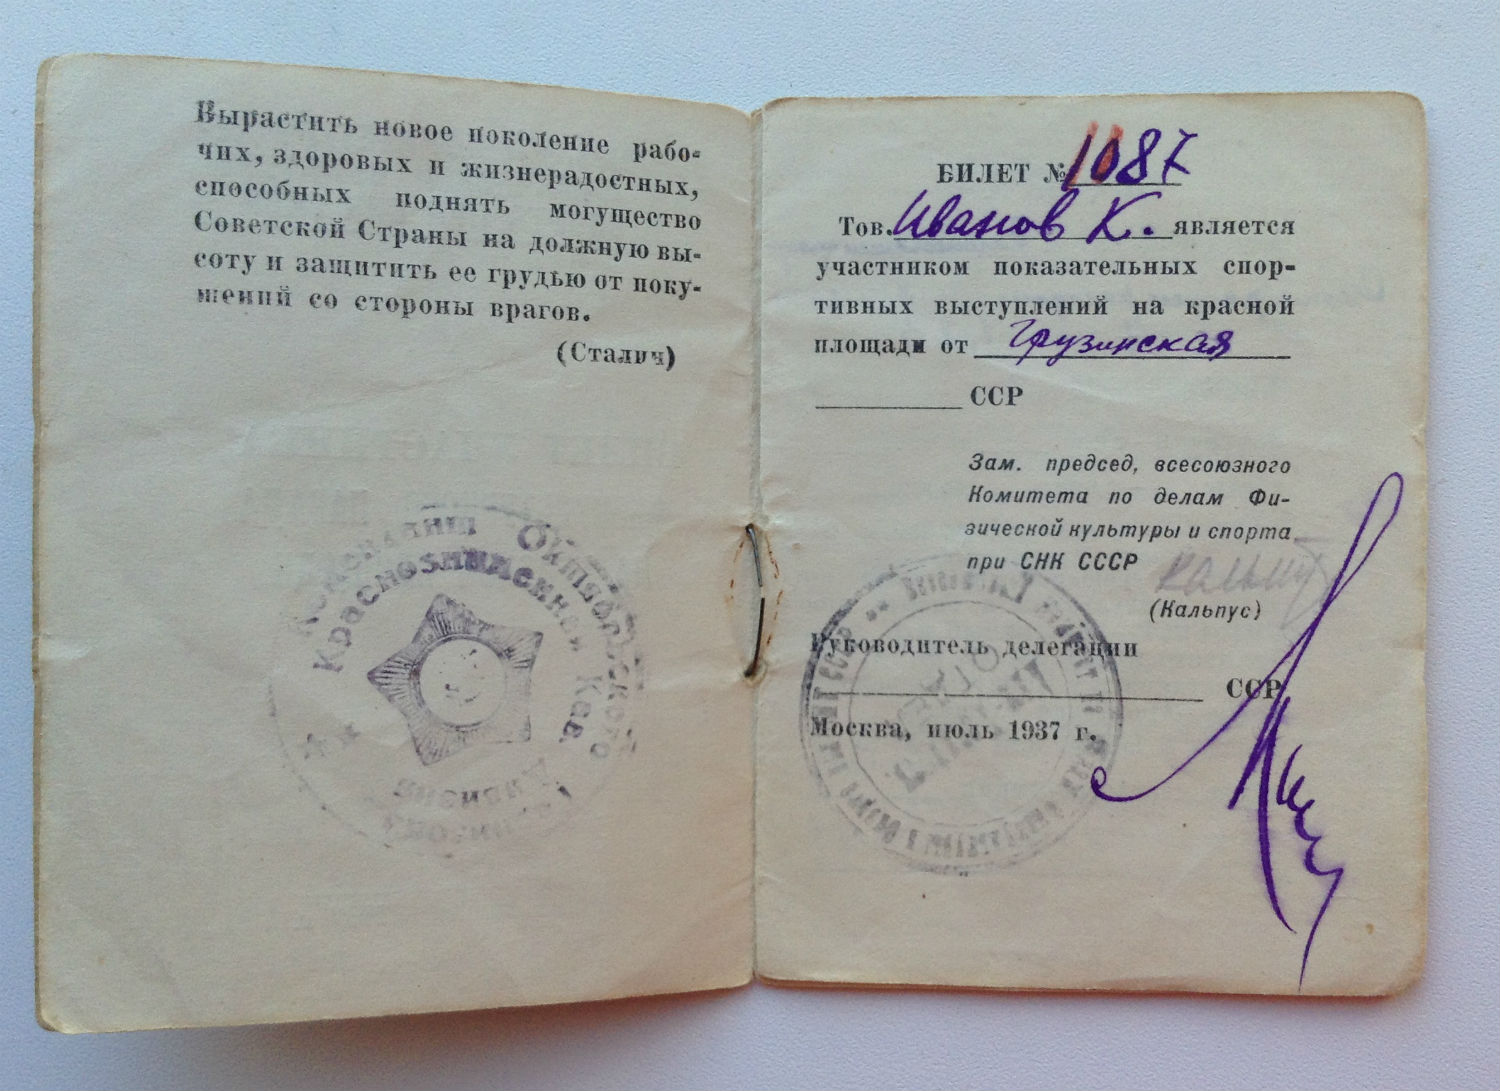 Вырастить новое поколение рабо-
чих, здоровых и жизнерадостных,
способных поднять могущество
Советской Страны на должную вы-
соту и защитить ее грудью от поку-
шений со стороны врагов.
(Сталин)
Октябрьского
Краснознаменная Кав.
Дивизия
БИЛЕТ № 1087
Тов. Иванов К. является
участником показательных спор-
тивных выступлений на красной
площади от Грузинская
ССР
Зам. председ, всесоюзного
Комитета по делам Фи-
зической культуры и спорта
при СНК СССР
(Кальпус)
Руководитель делегации
ССР
Москва, июль 1937 г.